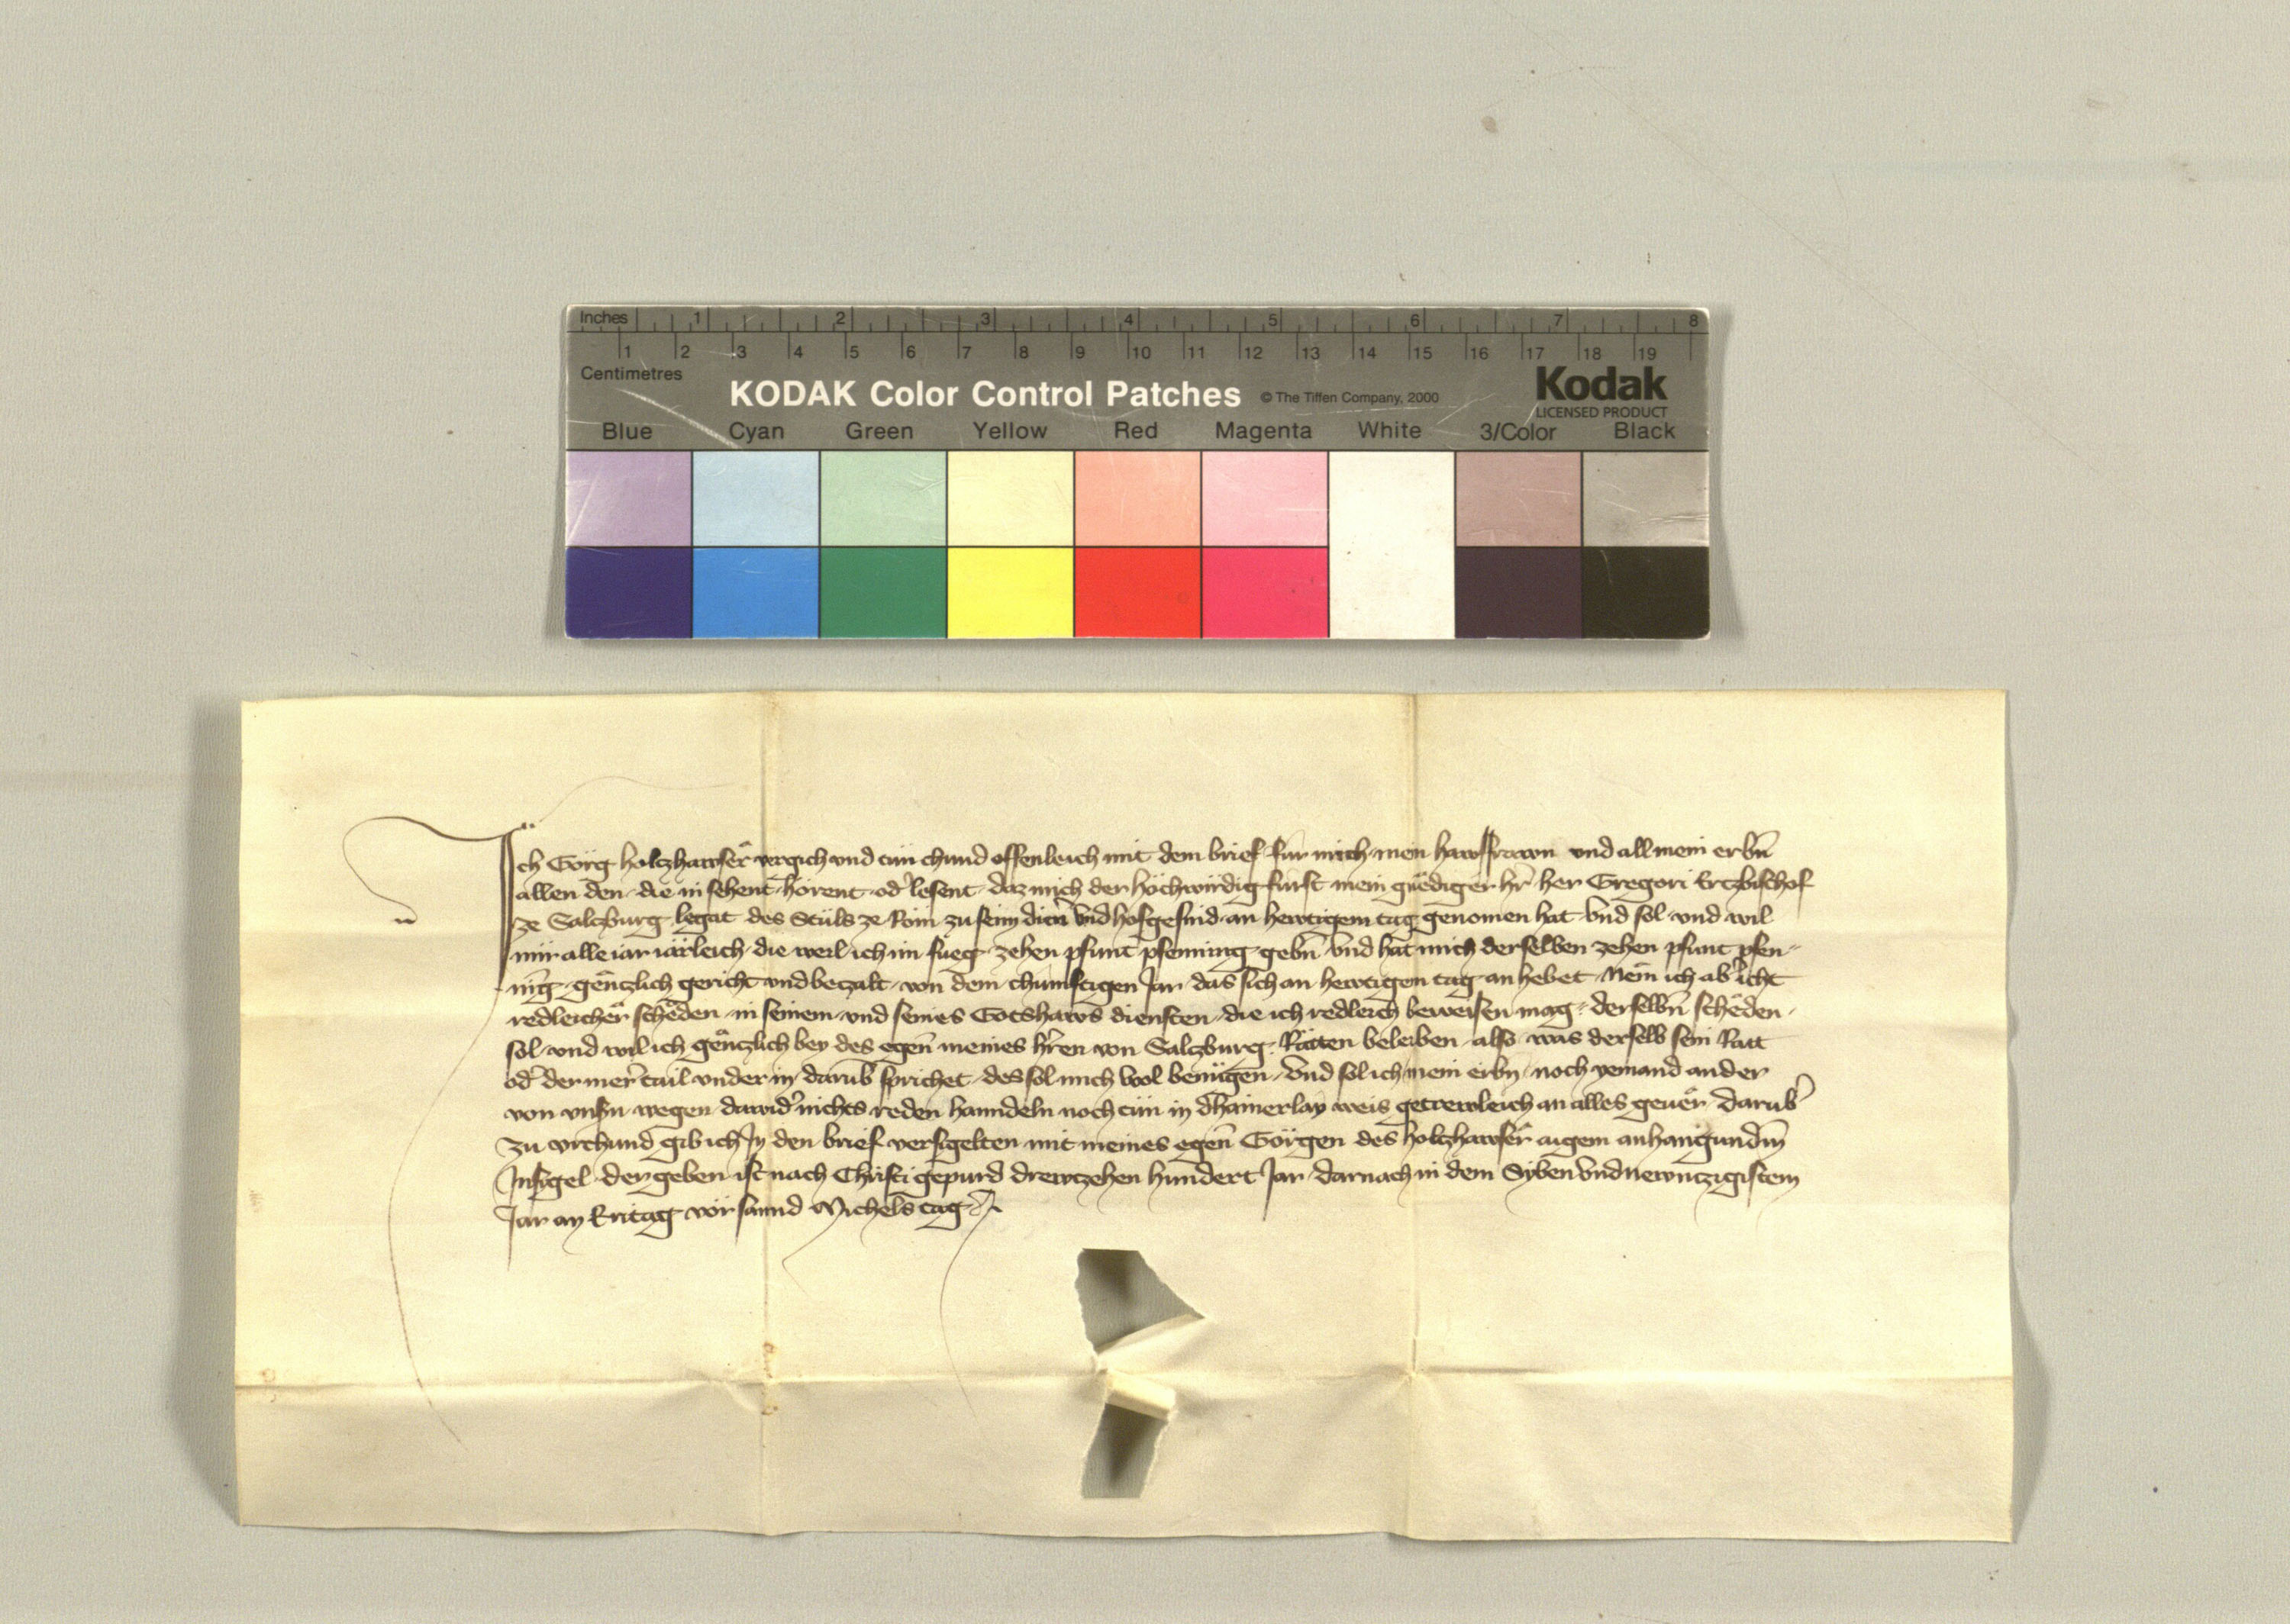 Inches 1 2 3 4 5 6 7 8
1 2 3 4 5 6 7 8 9 10 11 12 13 14 15 16 17 18 19
Centimetres
KODAK Color Control Patches © The Tiffen Company, 2000 Kodak
LICENSED PRODUCT
Blue Cyan Green Yellow Red Magenta White 3/Color Black
Ich Görg holtzhawser vergich vnd tün chund offenleich mit dem brief für mich mein hawsfrawn vnd all mein erbn̄
allen den die in sehent hörent od' lesent daz mich der höchwirdig fürst mein gnediger hr̄ her Gregori Ertzbischof
ze Salczburg legat des Stüls ze Rom zu seim dien̄ vnd hofgesind an hewtigem tag genomen hat vnd sol vnd wil
mir alle iar iärleich die weil ich im fueg zehen pfunt pfenning gebn̄ vnd hat mich derselben zehen pfunt pfen-
nīg gentzlich gericht vnd betzalt von dem chumftigen Jar das sich an hewtigen tag an hebet Nem ich ab' icht
redleicher scheden in seinem vnd seines Gotshaws diensten die ich redleich beweisen mag derselbn̄ scheden
sol vnd wil ich gentzlich bey des egen̄ meines hr̄en von Salczburg Rätten beleiben also was derselb sein Ratt
od' der mer tail vnder in darub' sprichet des sol mich wol benügen vnd sol ich mein erbn noch yemand ander
von vnsn wegen dawid' nichts reden hanndeln noch tün in dhainerlay weis getrewleich an alles geuer darub'
zu vrchund gib ich In den brief versigelten mit meines egen̄ Görgen des holtzhawser aigem anhangundm̄
Insigel der geben ist nach Christi gepurd drewtzehen hundert Jar darnach in dem Syben vnd newntzigistem
Jar an Eritag vor sannd Michels tag